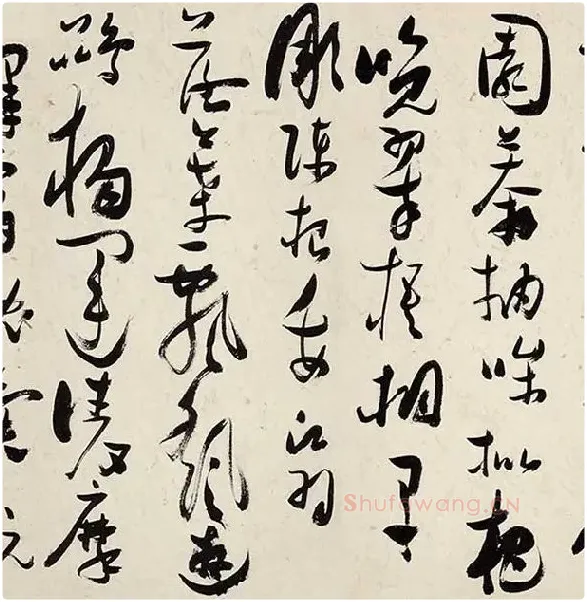 園莽抽條枇杷
晚翠梧桐早
彫陳根委翳
落葉飄颻遊
鵾獨運凌摩
Shufawang.CN